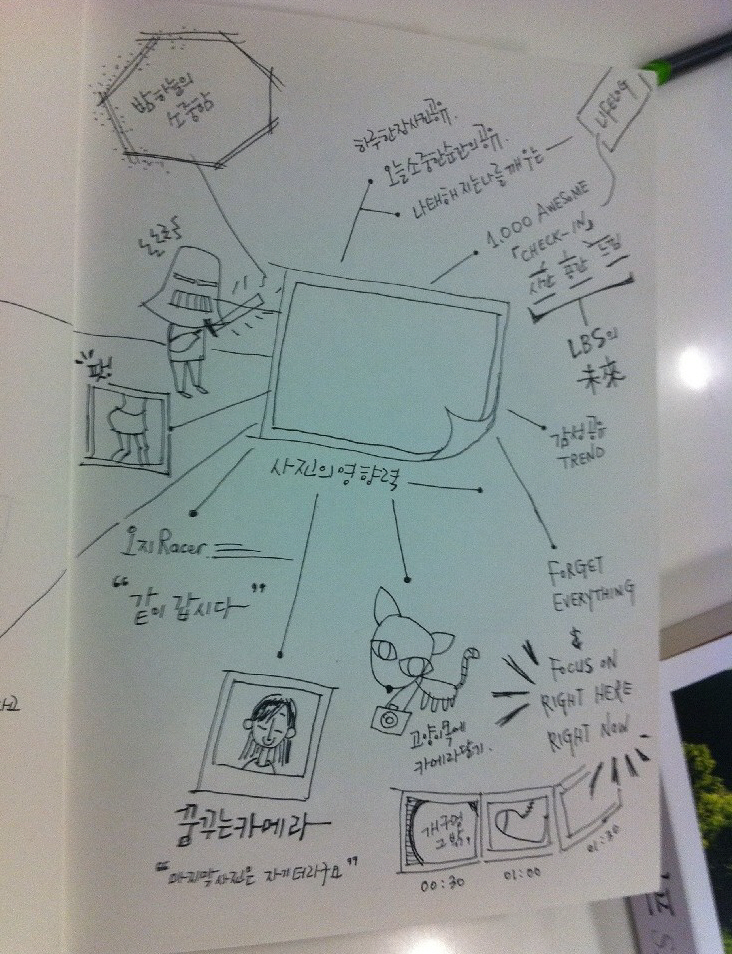 밤하늘의
소중함
하루한장사진공유.
오늘소중한순간의공유.
나태해지는나를깨우는
LIFELOG
1,000 AWESOME
「CHECK-IN」
시간 공간 느낌
LBS의
未來
감성공유
TREND
"팻!
사진의영향력
오지Racer
"같이갑시다"
FORGET
EVERYTHING
&
FOCUS ON
RIGHT HERE
RIGHT NOW
고양이목에
카메라달기.
꿈꾸는카메라
"마지막사진은 자기더라구요"
개구멍
그 밖,
00:30
01:00
01:30